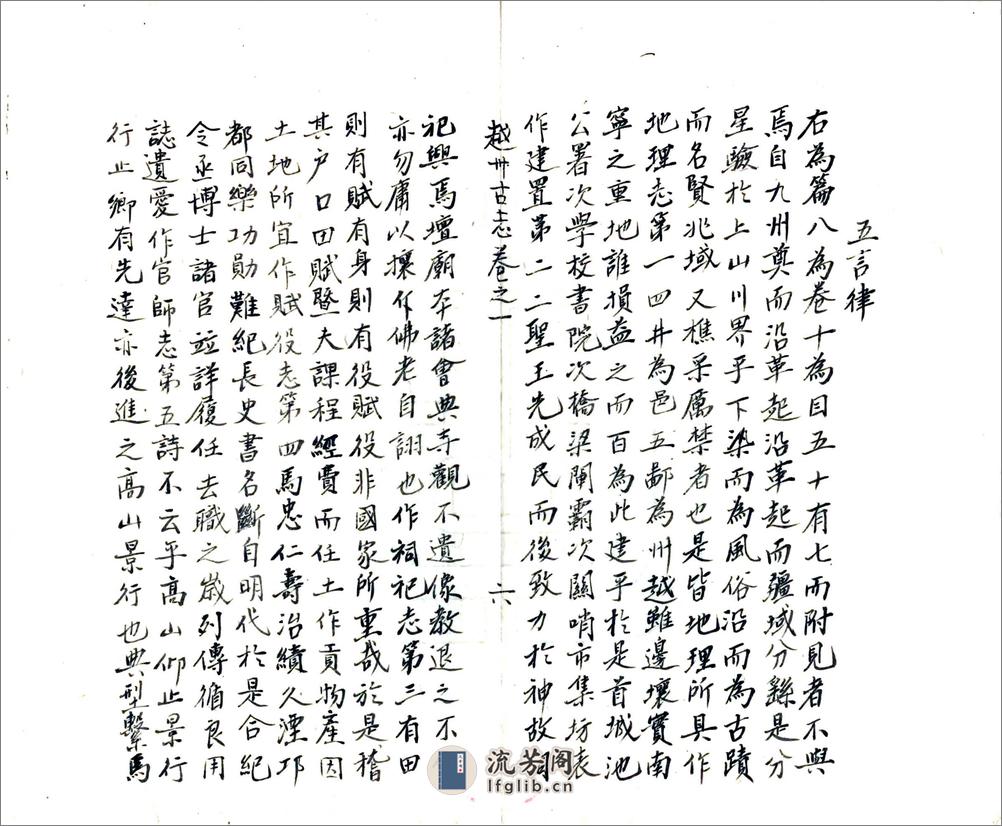 五言律
右為篇八為卷十為目五十有七而附見者不與
焉自九州奠而沿革起沿革起而疆域分繇是分
星驗於上山川界乎下染而為風俗沿而為古蹟
而名賢兆域又樵采厲禁者也是皆地理所具作
地理志第一四井為邑五鄙為州越雖邊壤實南
寧之重地誰損益之而百為此建乎於是首城池
公署次學校書院次橋梁閘霸次關哨市集坊表
作建置第二二聖王先成民而後致力於神故祠
越州古志卷之一 六
祀興焉壇廟本諸會典寺觀不遺像教退之不
亦勿庸以攘斥佛老自詡也作祠祀志第三有田
則有賦有身則有役賦役非國家所重哉於是稽
其户口田賦暨夫課程經費而任土作貢物產因
土地所宜作賦役志第四馬忠仁壽治績久湮邛
都同樂功勛難紀長史書名斷自明代於是合紀
令丞博士諸官並詳履任去職之歲列傳循良用
誌遺愛作官師志第五詩不云乎高山仰止景行
行止鄉有先達亦後進之高山景行也典型繫焉
流芳阁
lfglib.cn